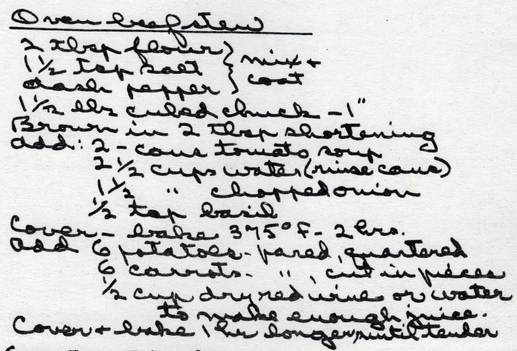 Oven beef stew
2 tbsp flour } mix +
1 1/2 tsp salt } coat
dash pepper
1 1/2 lbs cubed chuck - 1"
Brown in 2 tbsp shortening
add: 2 - cans tomato soup
2 1/2 cups water (rinse cans)
1 1/2 " chopped onion
1/2 tsp basil
Cover - bake 375°F - 2 hrs.
add 6 potatoes - pared, quartered
6 carrots - ", cut in pieces
1/2 cup dry red wine or water
to make enough juice.
Cover + bake 1 hr longer, until tender